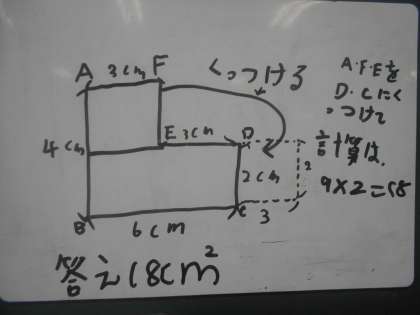 A 3cm F
くっつける
A・F・Eを
D・Cにく
っつけて
計算は、
9×2=18
E 3cm D
4cm
2cm
2
B 6cm C
3
答え18cm²